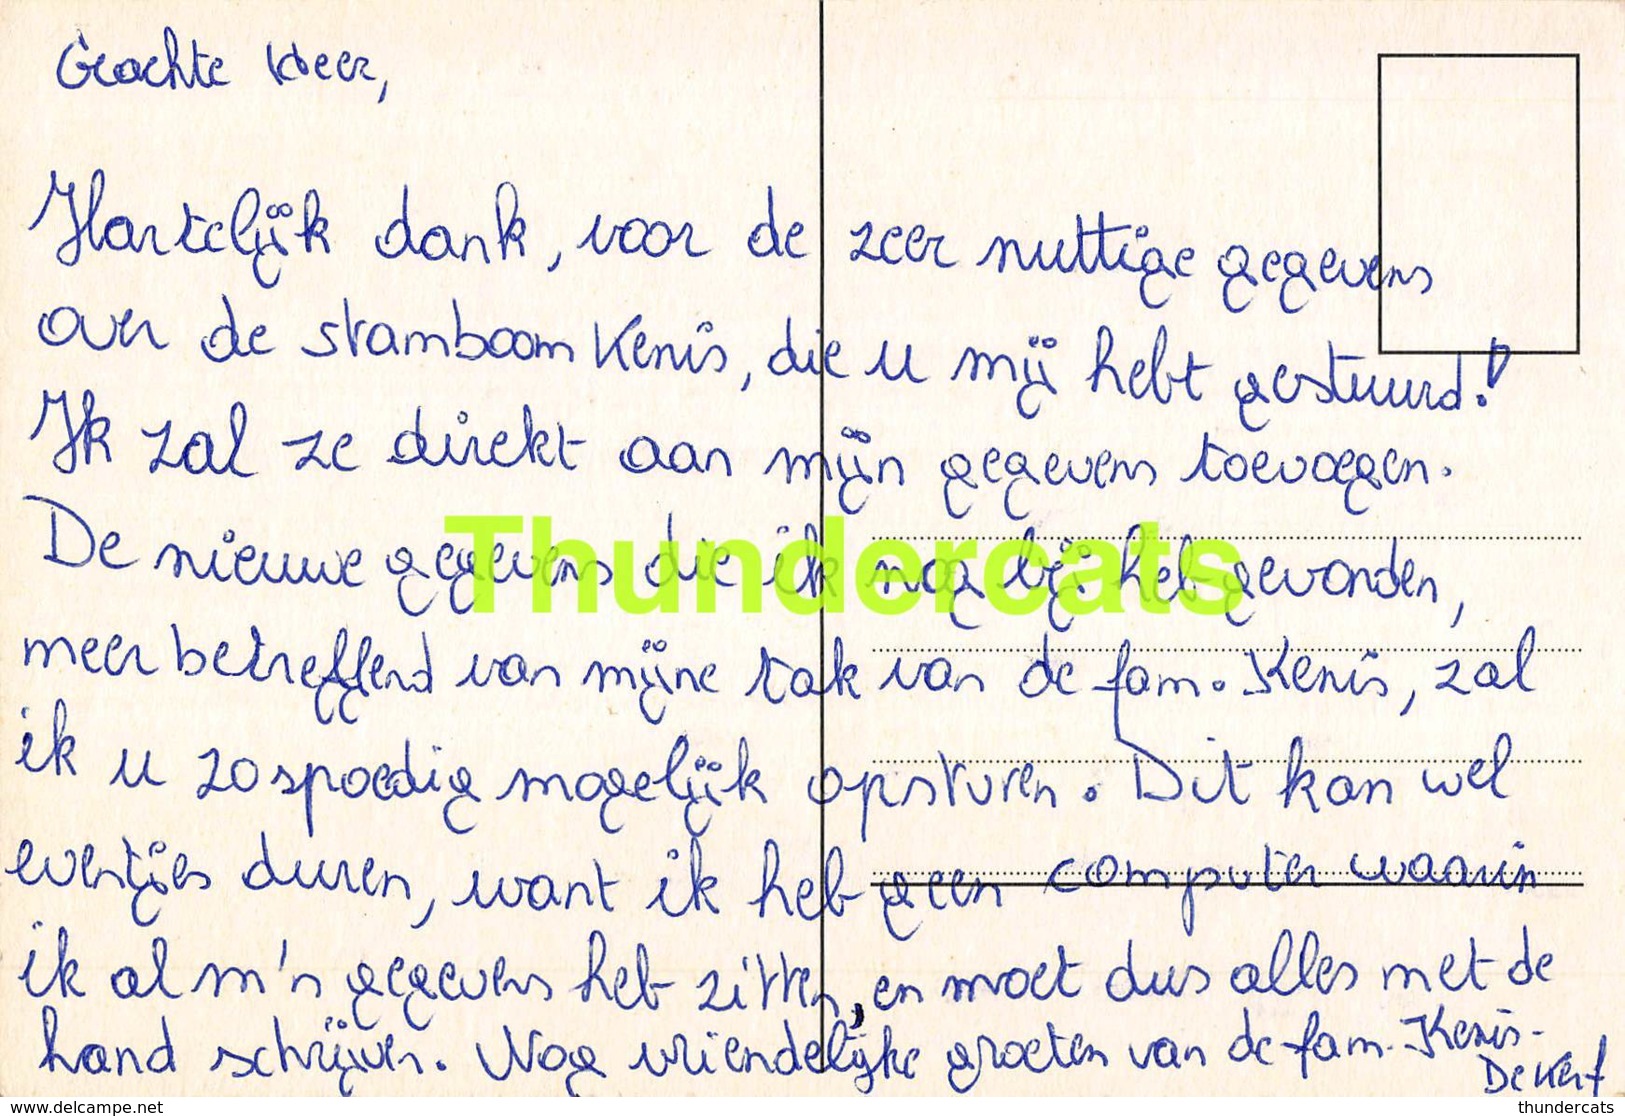 Geachte Heer,
Hartelijk dank, voor de zeer nuttige gegevens
over de stamboom Kenis, die u mij hebt gestuurd!
Ik zal ze direkt aan mijn gegevens toevoegen.
De nieuwe gegevens die ik nog bij heb gevonden,
meer betreffend van mijne tak van de fam. Kenis, zal
ik u zo spoedig mogelijk opsturen. Dit kan wel
eventjes duren, want ik heb geen computer waarin
ik al m'n gegevens heb zitten, en moet dus alles met de
hand schrijven. Nog vriendelijke groeten van de fam. Kenis-
De Kerf
Thundercats
www.delcampe.net
thundercats